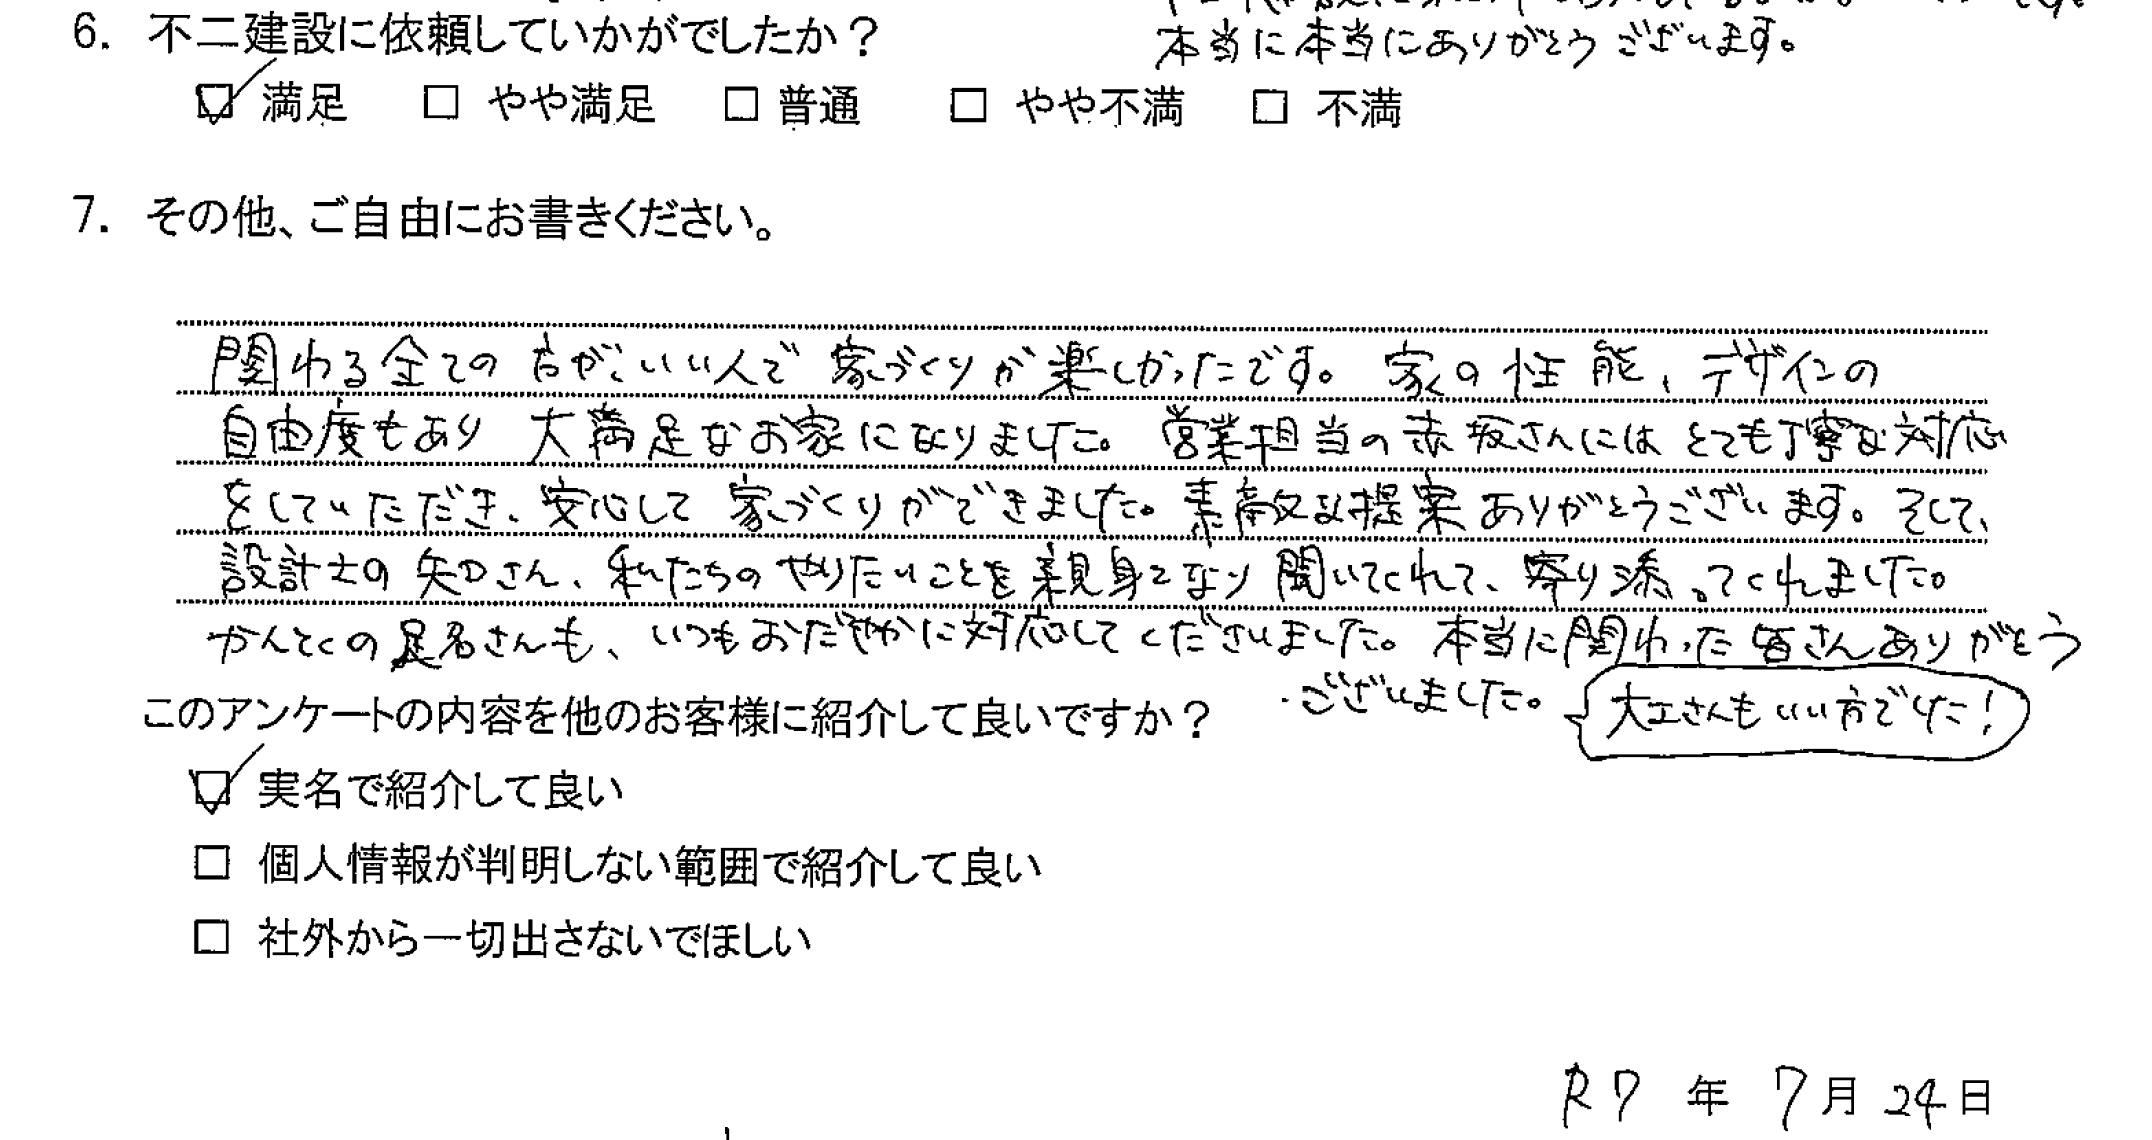 6. 不二建設に依頼していかがでしたか？
本当に本当にありがとうございます。
☑ 満足 □ やや満足 □ 普通 □ やや不満 □ 不満
7. その他、ご自由にお書きください。
関わる全ての方がいい人で家づくりが楽しかったです。家の性能、デザインの
自由度もあり 大満足なお家になりました。営業担当の赤坂さんにはとても丁寧な対応
をしていただき、安心して家づくりができました。素敵な提案ありがとうございます。そして、
設計士の矢口さん、私たちのやりたいことを親身となり聞いてくれて、寄り添ってくれました。
かんとくの さんも、いつもおだやかに対応してくださいました。本当に関わった皆さんありがとう
ございました。
大工さんもいい方でした！
このアンケートの内容を他のお客様に紹介して良いですか？
☑ 実名で紹介して良い
□ 個人情報が判明しない範囲で紹介して良い
□ 社外から一切出さないでほしい
R7 年 7月 24日